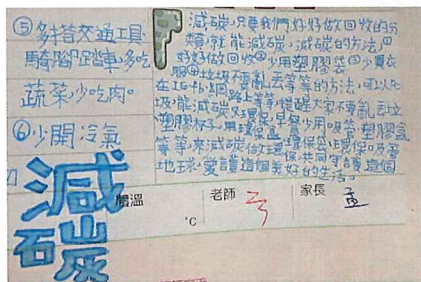 ⑤多搭交通工具
騎腳踏車,多吃
蔬菜少吃肉。
⑥少開冷氣
減碳
減碳,只要我們好好做回收的分
類,就能減碳,減碳的方法,①
好好做回收②少用塑膠袋③少買衣
服④垃圾不要亂丟等等的方法,可以
在 網路上等等,提醒大家不要亂丟垃
圾,能減碳 環保,早餐少用吸管 塑膠盒
塑膠杯,用環保盒 環保袋 環保
等等,來減碳做環保,共同守護這個
地球,愛護這個美好的生活。
體溫
°C
老師
家長
孟